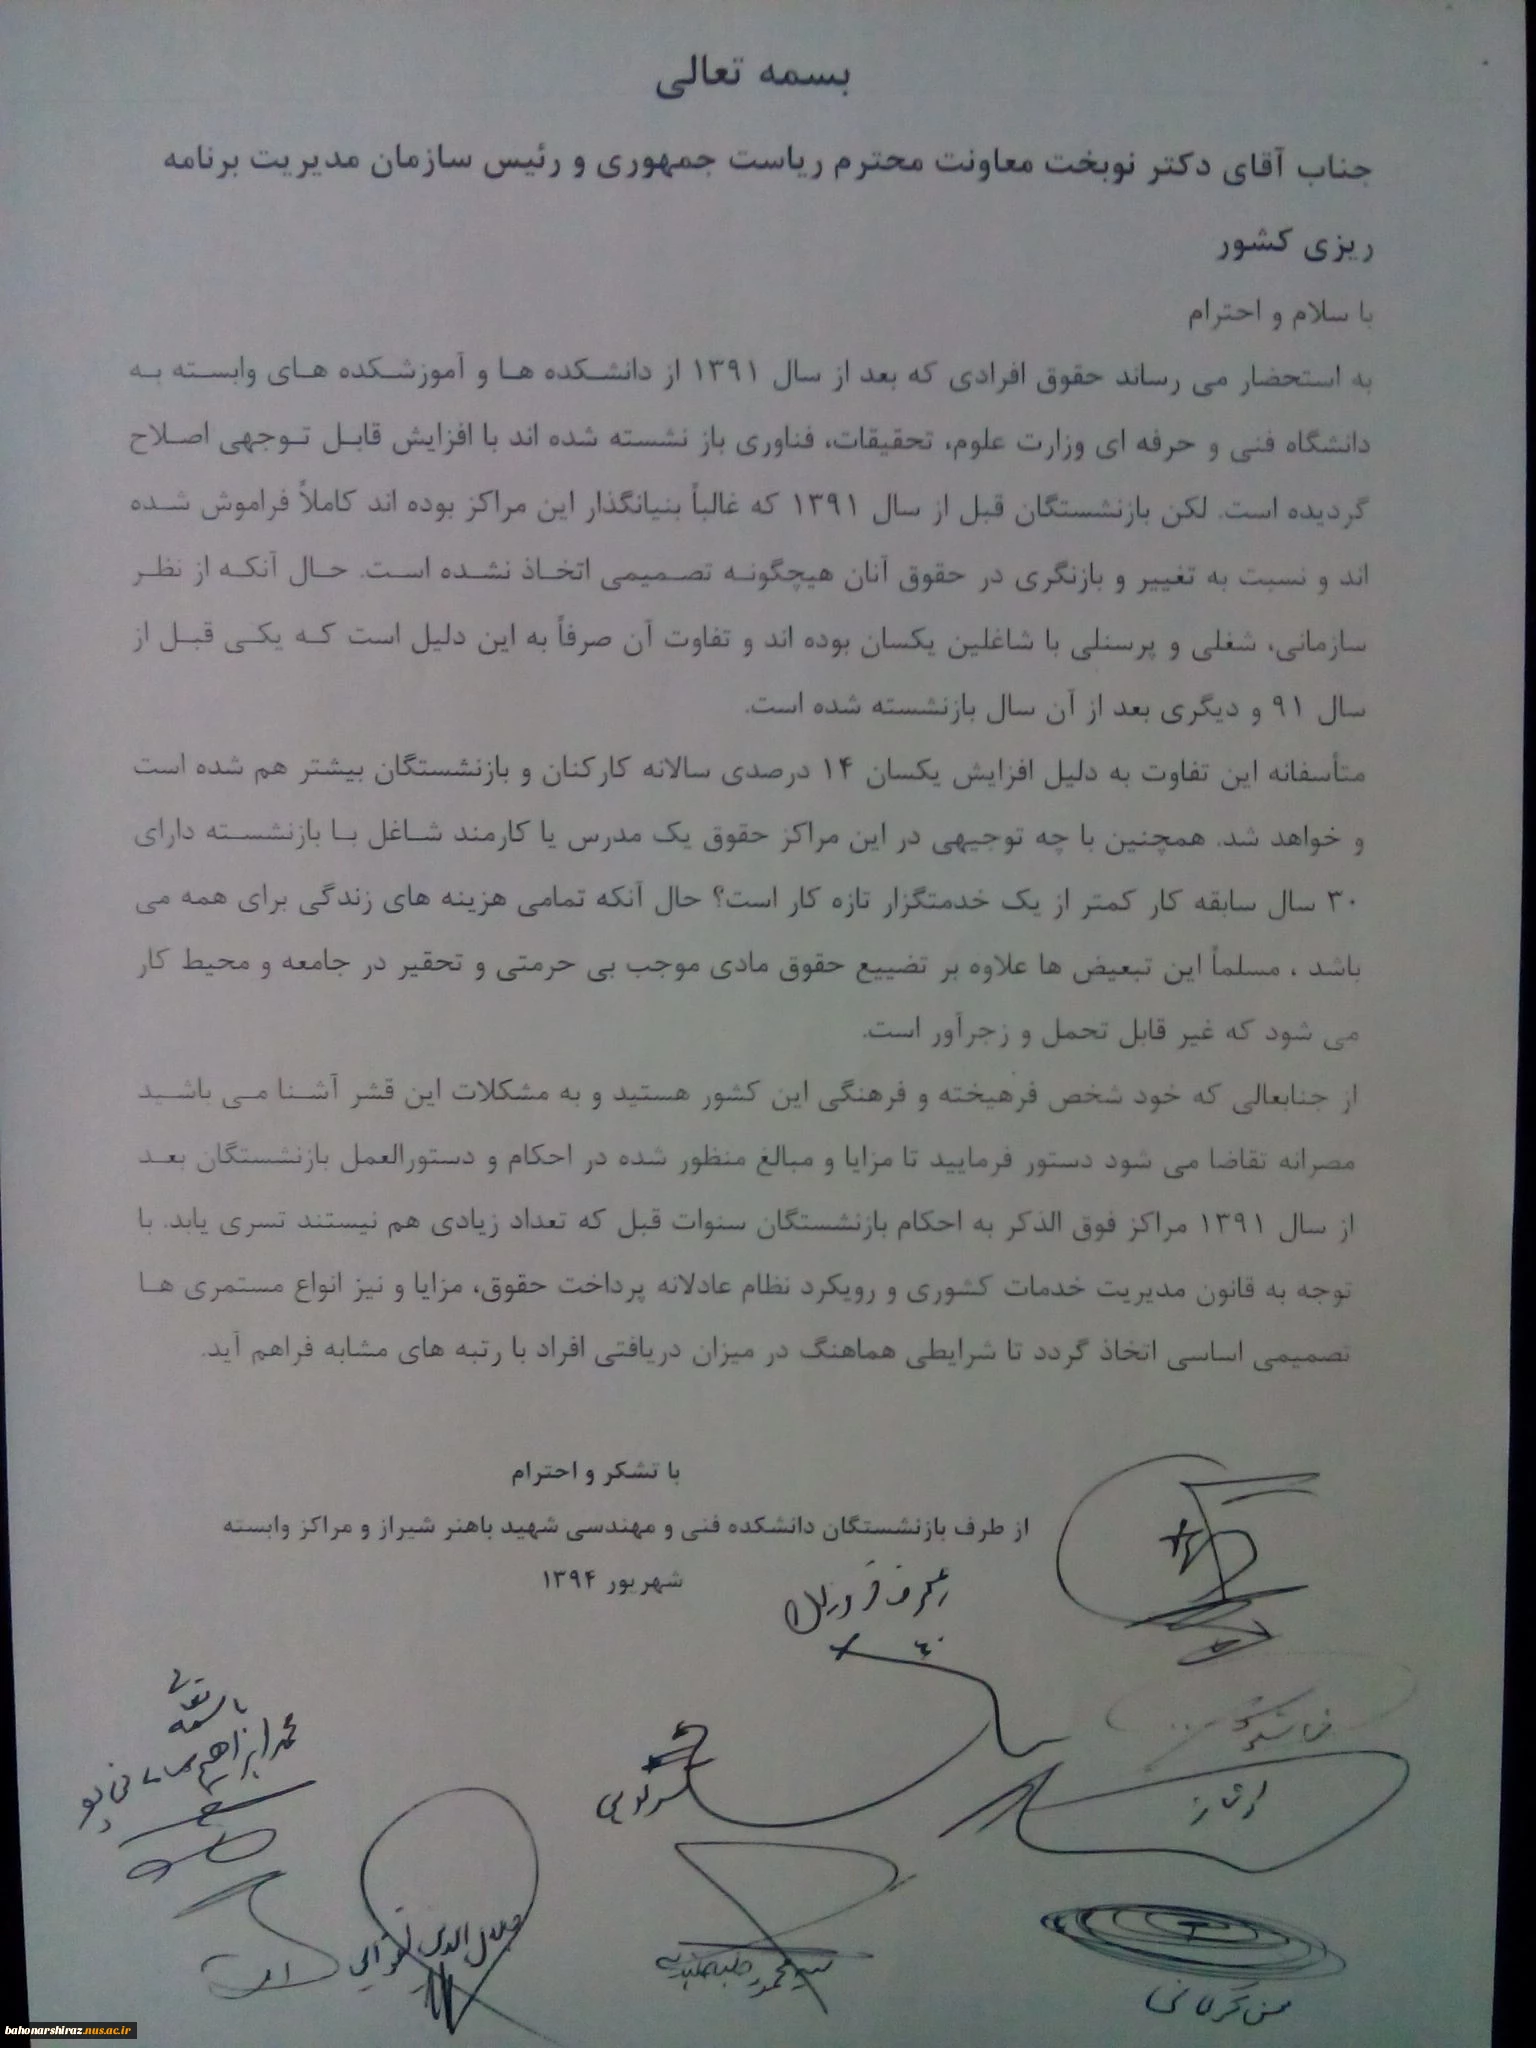 بسمه تعالی
جناب آقای دکتر نوبخت معاونت محترم ریاست جمهوری و رئیس سازمان مدیریت برنامه
ریزی کشور
با سلام و احترام
به استحضار می رساند حقوق افرادی که بعد از سال ۱۳۹۱ از دانشکده ها و آموزشکده های وابسته به
دانشگاه فنی و حرفه ای وزارت علوم، تحقیقات، فناوری باز نشسته شده اند با افزایش قابل توجهی اصلاح
گردیده است. لکن بازنشستگان قبل از سال ۱۳۹۱ که غالباً بنیانگذار این مراکز بوده اند کاملاً فراموش شده
اند و نسبت به تغییر و بازنگری در حقوق آنان هیچگونه تصمیمی اتخاذ نشده است. حال آنکه از نظر
سازمانی، شغلی و پرسنلی با شاغلین یکسان بوده اند و تفاوت آن صرفاً به این دلیل است که یکی قبل از
سال ۹۱ و دیگری بعد از آن سال بازنشسته شده است.
متأسفانه این تفاوت به دلیل افزایش یکسان ۱۴ درصدی سالانه کارکنان و بازنشستگان بیشتر هم شده است
و خواهد شد. همچنین با چه توجیهی در این مراکز حقوق یک مدرس یا کارمند شاغل با بازنشسته دارای
۳۰ سال سابقه کار کمتر از یک خدمتگزار تازه کار است؟ حال آنکه تمامی هزینه های زندگی برای همه می
باشد ، مسلماً این تبعیض ها علاوه بر تضییع حقوق مادی موجب بی حرمتی و تحقیر در جامعه و محیط کار
می شود که غیر قابل تحمل و زجرآور است.
از جنابعالی که خود شخص فرهیخته و فرهنگی این کشور هستید و به مشکلات این قشر آشنا می باشید
مصرانه تقاضا می شود دستور فرمایید تا مزایا و مبالغ منظور شده در احکام و دستورالعمل بازنشستگان بعد
از سال ۱۳۹۱ مراکز فوق الذکر به احکام بازنشستگان سنوات قبل که تعداد زیادی هم نیستند تسری یابد. با
توجه به قانون مدیریت خدمات کشوری و رویکرد نظام عادلانه پرداخت حقوق، مزایا و نیز انواع مستمری ها
تصمیمی اساسی اتخاذ گردد تا شرایطی هماهنگ در میزان دریافتی افراد با رتبه های مشابه فراهم آید.
با تشکر و احترام
از طرف بازنشستگان دانشکده فنی و مهندسی شهید باهنر شیراز و مراکز وابسته
شهریور ۱۳۹۴
باسمه تعالی
محمد ابراهیم
جلال الدین
سید محمود
bahonarshiraz.nus.ac.ir